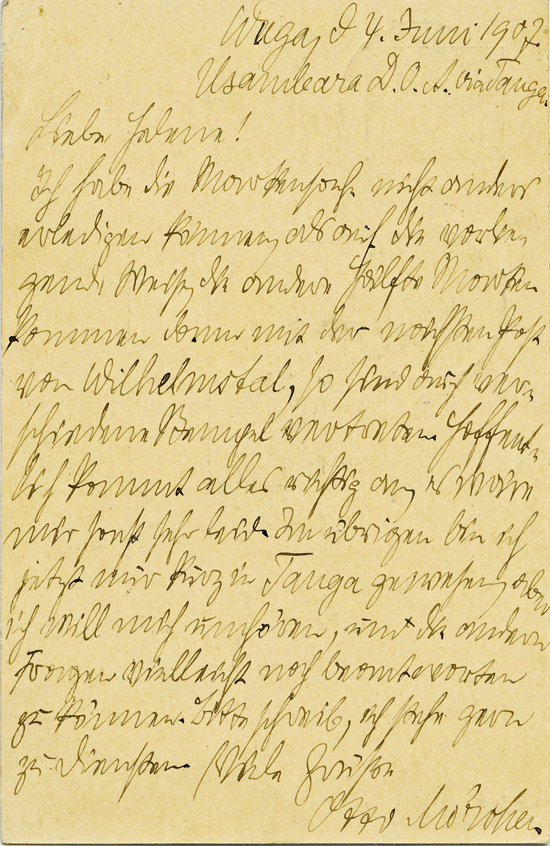 Wuga, d 4. Juni 1907.
Usambara D. O. A. via Tanga.
Liebe Helene!
Ich habe die Markensache nicht anders
erledigen können, als auf die vorlie-
gende Weise, die andere Hälfte Marken
kommen dann mit der nächsten Post
von Wilhelmstal, so sind auch ver-
schiedene Stempel vertreten. Hoffent-
lich kommt alles richtig an, es wäre
mir sonst sehr leid. Im übrigen bin ich
jetzt nur kurz in Tanga gewesen, aber
ich will mich umhören, und die anderen
Fragen vielleicht noch beantworten
zu können. Bitte schreib, ich stehe gern
zu Diensten. Viele Grüße
Otto